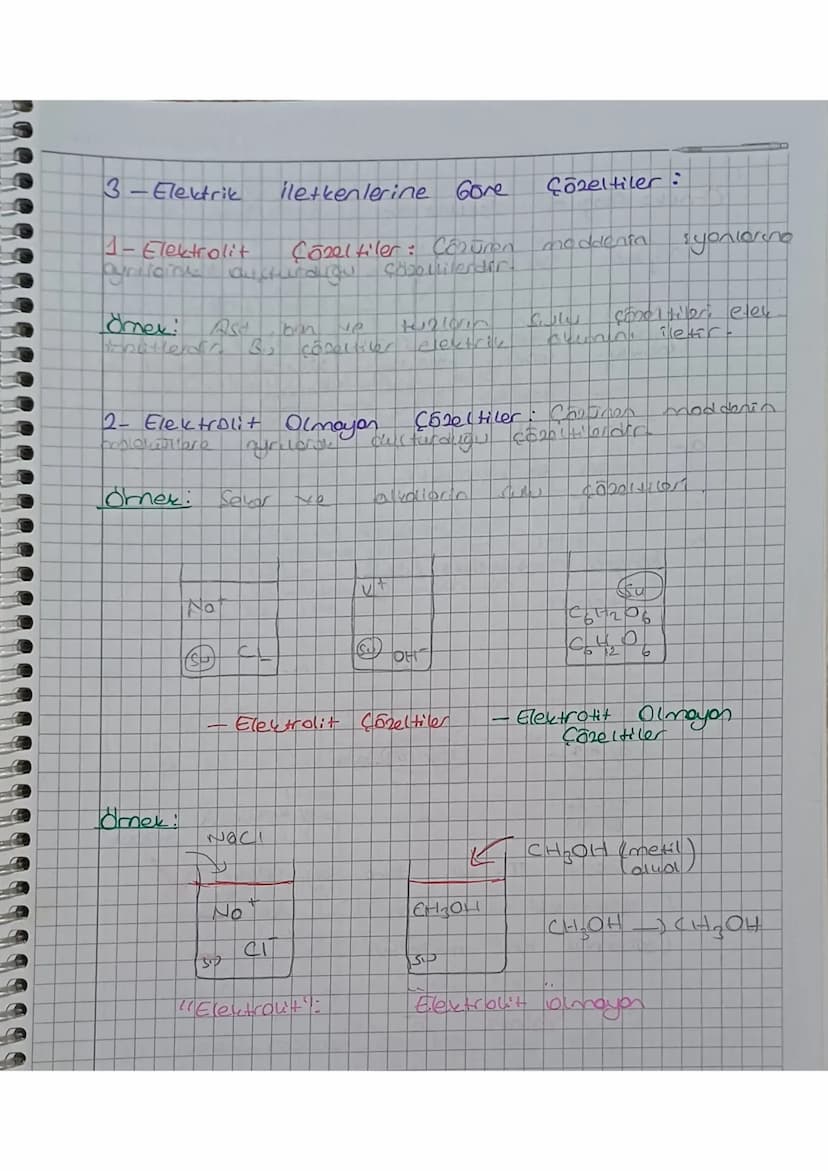 3-Elektrik iletkenlerine Göre Çözeltiler:
1-Elektrolit Çözeltiler: Çözünen maddenin iyonlarına
ayrılarak oluşturduğu çözeltilerdir.
Örnek: Asit baz ve tuzların sulu çözeltileri elek
trolitlerdir. Bu çözeltiler elektrik akımını iletir.
2- Elektrolit Olmayan Çözeltiler: Çözünen maddenin
moleküllere ayrılarak oluşturduğu çözeltilerdir.
Örnek: Şeker ve alkollerin sulu çözeltileri.
Na⁺ K⁺ Su
Su CL⁻ Su OH⁻ C₆H₁₂O₆
C₆H₁₂O₆
- Elektrolit Çözeltiler - Elektrolit Olmayan
Çözeltiler
Örnek:
NaCl CH₃OH (metil
alkol)
Na⁺ CH₃OH CH₃OH → CH₃OH
su Cl⁻ su
"Elektrolit": Elektrolit olmayan